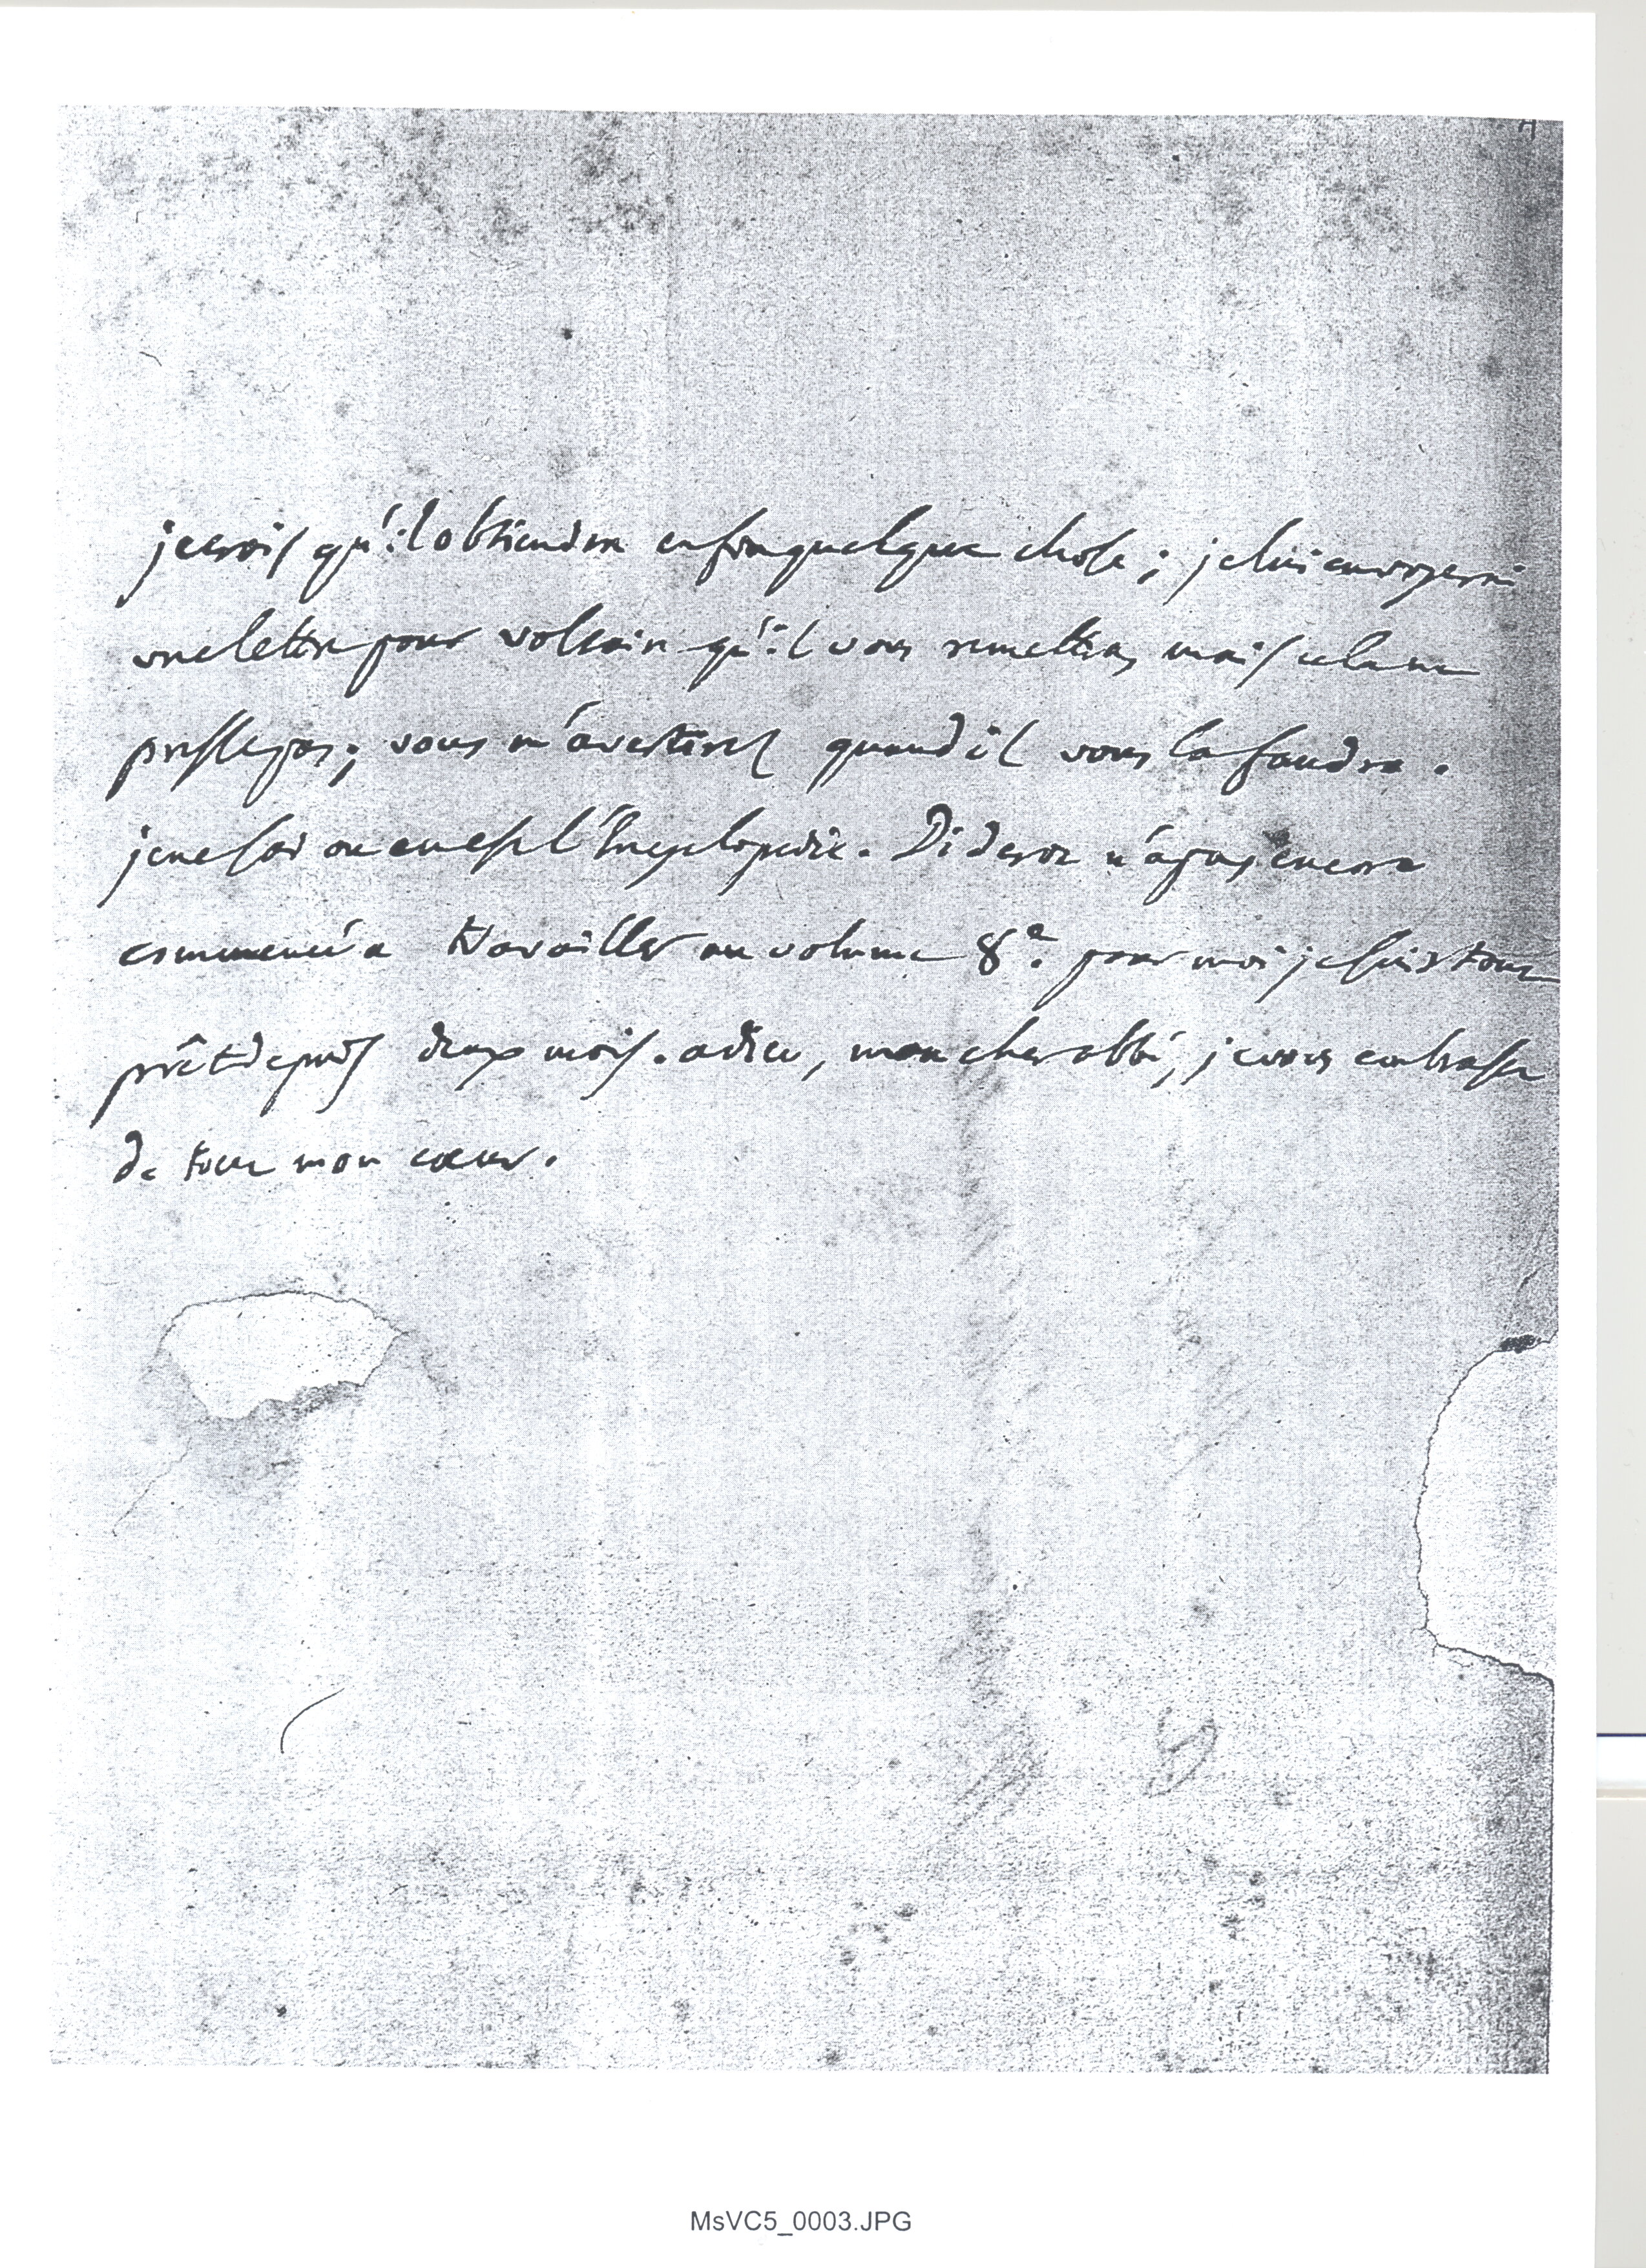 je crois qu'il obtiendra enfin quelque chose; je lui envoyerai
une lettre pour voltaire qu'il vous remettra, mais cela ne
presse pas; vous m'avertirez quand il vous la faudra.
je ne sai ou en est l'Encyclopedie. Diderot n'a pas encore
commencé a travailler au volume 8e. pour moi je suis tout
prêt depuis deux mois. adieu, mon cher abbé, je vous embrasse
de tout mon cœur.
MsVC5_0003.JPG